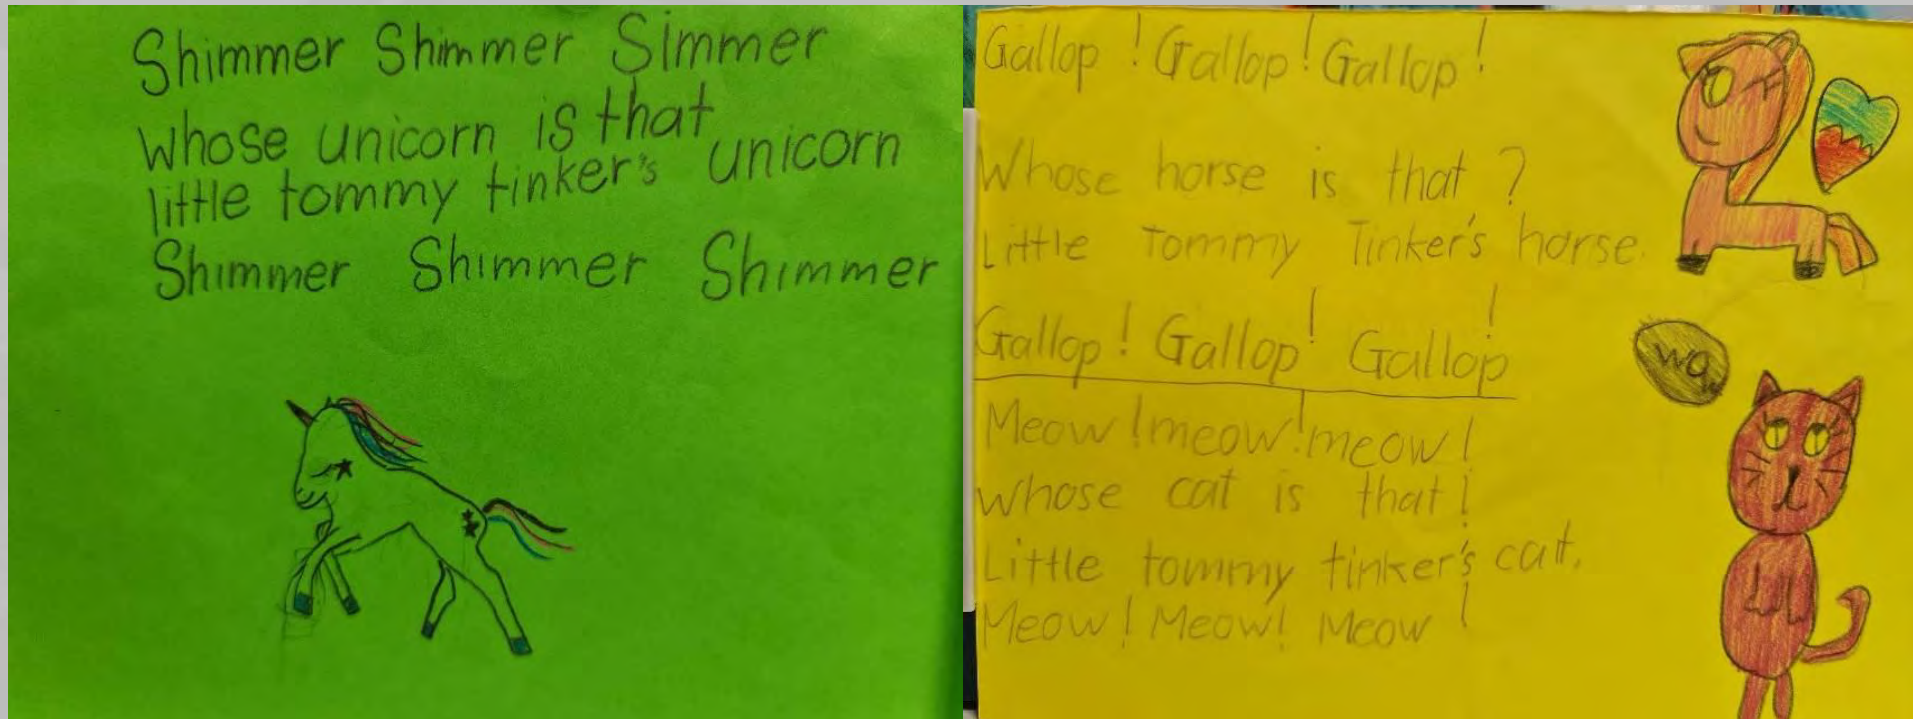 Shimmer Shimmer Simmer
whose unicorn is that
little tommy tinker's unicorn
Shimmer Shimmer Shimmer
Gallop! Gallop! Gallop!
Whose horse is that?
Little Tommy Tinker's horse.
Gallop! Gallop! Gallop!
Meow! meow! meow!
whose cat is that!
Little tommy tinker's cat.
Meow! Meow! Meow!
wo